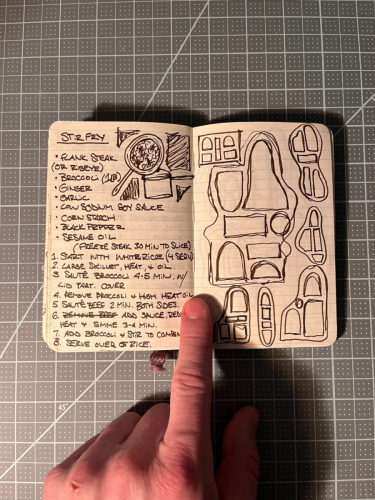 STIR FRY
• FLANK STEAK
(OR RIBEYE)
• BROCCOLI (1LB)
• GINGER
• GARLIC
• LOW SODIUM SOY SAUCE
• CORN STARCH
• BLACK PEPPER
• SESAME OIL
(FREEZE STEAK 30 MIN TO SLICE)
1. START WITH WHITE RICE (4 SERV)
2. LARGE SKILLET, HEAT, & OIL.
3. SAUTÉ BROCCOLI 4-5 MIN. W/
LID PART. COVER
4. REMOVE BROCCOLI & HIGH HEAT OIL
5. SAUTÉ BEEF 2 MIN. BOTH SIDES.
6. REMOVE BEEF ADD SAUCE, RED
HEAT & SIMME 3-4 MIN.
7. ADD BROCCOLI & STIR TO COMBIN
8. SERVE OVER RICE.
45°